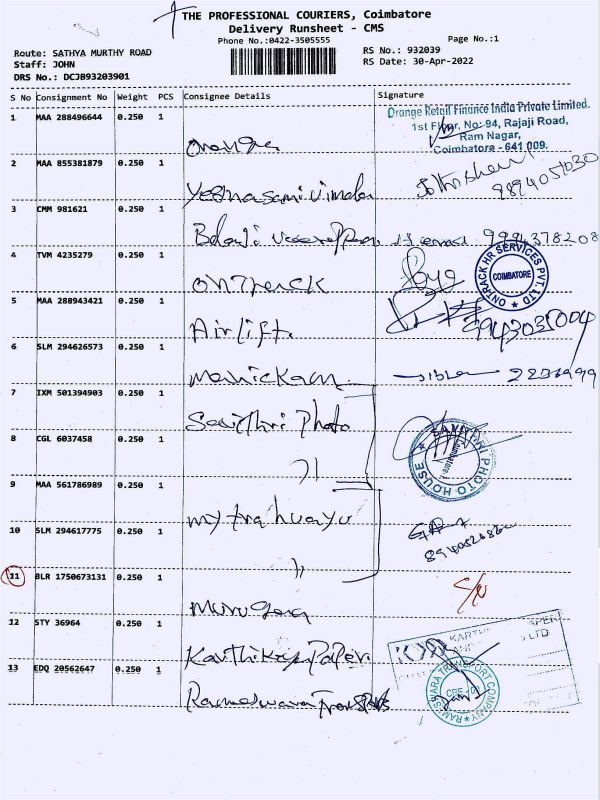 THE PROFESSIONAL COURIERS, Coimbatore
Delivery Runsheet - CMS
Phone No.:0422-3505555
Page No.:1
Route: SATHYA MURTHY ROAD
RS No.: 932039
Staff: JOHN
RS Date: 30-Apr-2022
DRS No.: DCJB93203901
S No Consignment No Weight PCS Consignee Details Signature
1 MAA 288496644 0.250 1 Orange
Orange Retail Finance India Private Limited.
1st Floor, No: 94, Rajaji Road,
Ram Nagar,
Coimbatore - 641 009.
2 MAA 855381879 0.250 1
3 CMM 981621 0.250 1 Balaji 9994378208
4 TVM 4235279 0.250 1 ONTrack
ONTRACK HR SERVICES PVT. LTD
COIMBATORE
5 MAA 288943421 0.250 1 Airlift
6 SLM 294626573 0.250 1 Manickam
7 IXM 501394903 0.250 1 Savithri Photo
8 CGL 6037458 0.250 1 )1
PHOTO HOUSE
9 MAA 561786989 0.250 1
10 SLM 294617775 0.250 1 ))
11 BLR 1750673131 0.250 1
12 STY 36964 0.250 1 Karthikeya Paper
LTD
13 EDQ 20562647 0.250 1 Rameswara Transports
RAMESWARA TRANSPORT COMPANY